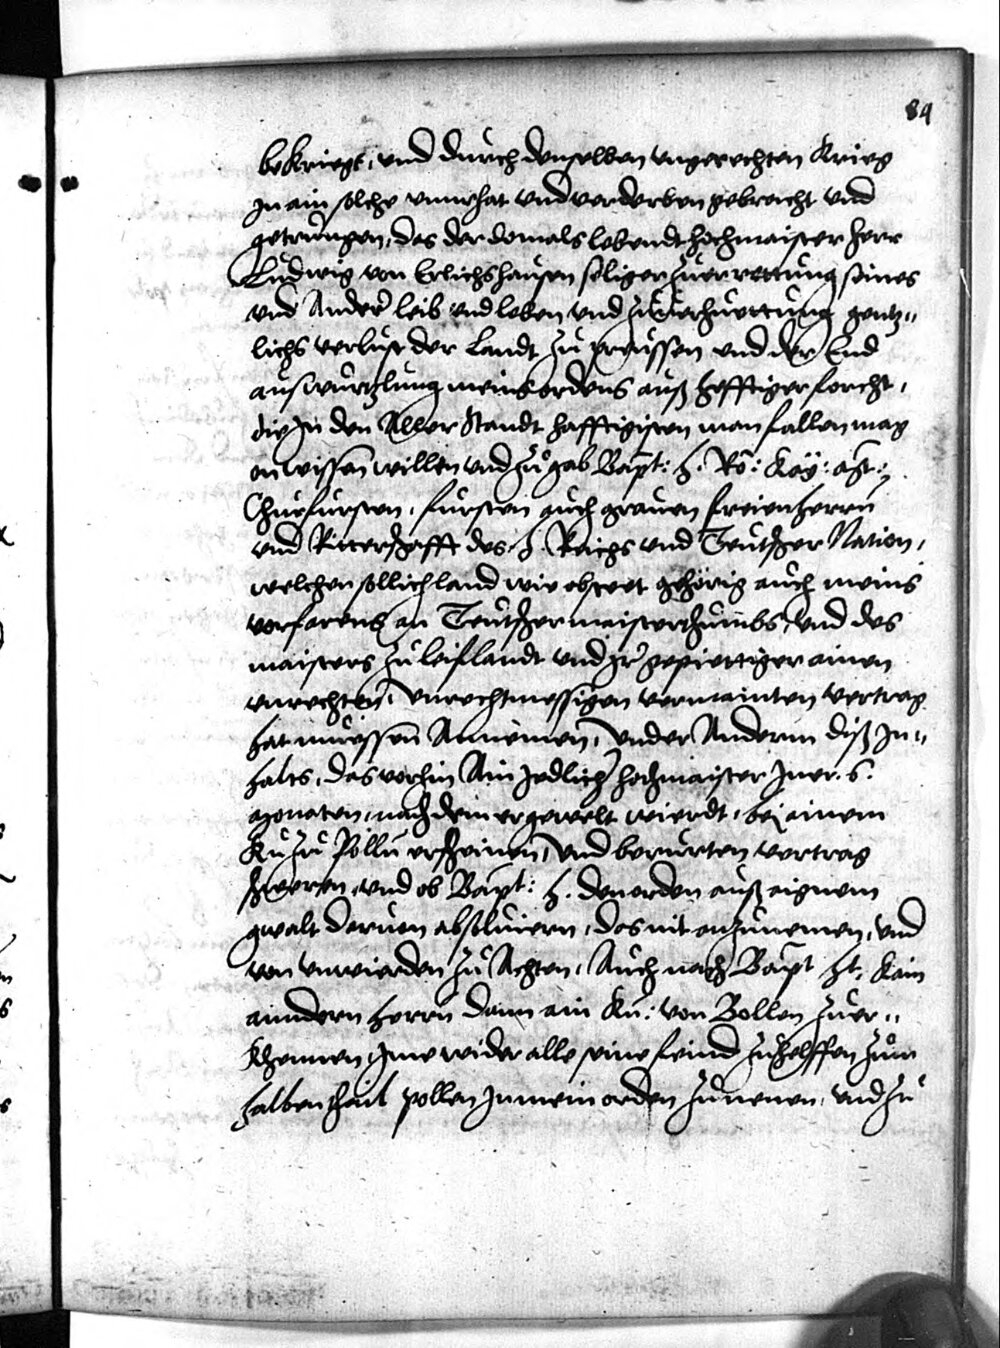 84
bekriegt, und durch denselben ungerechten Krieg
In ain solche vnrhat vnd verderben gebracht vnd
getrungen, das der domals lebendt Hochmaister Herr
Ludwig von Erlichshausen seliger zu errettung seines
vnd Anderer leib vnd leben vnd zuuerhuettung gentz"
lichs verlust der Landt zu preussen vnd der End
auswurtzlung meins ordens auß hefftiger forcht,
die In den Aller Standthafftigisten man fallen mag
on wissen willen vnd zugab Bapt: H. Rö: Kay: Mt:
Churfursten, fursten auch grauen freien Herrn
vnd Ritterschafft des H. Reichs vnd Teutscher Nation,
welchen sollich land wie obsteet gehörig auch meins
vorfarens an Teutschermaisterthumbs, vnd des
maisters zu leiflandt vnd Ir gepiettiger ainen
vnrechten, vnrechtmessigen vermainten vertrag
hat muessen Annemen, vnder Anderm diß In"
halts, das verhin Ain Jedlicher Hochmaister Inner. 6.
monaten, nach dem er gewelt wierdt, bej ainem
Ku: zu Polln erscheinen, vnd berurten vertrag
schweren, vnd ob Bapt: H. den orden auß aignem
gwalt daruon absoluiern, das nit anzunemen, vnd
von vnwierden zu Achten, Auch nach Bapt Ht. Kain
anndern Herrn dann ain Ku: von Bollen zu er"
Khennen, Ime wider alle seine feind zuhelffen zum
halben thail pollen In mein orden zu nemen, vnd zu